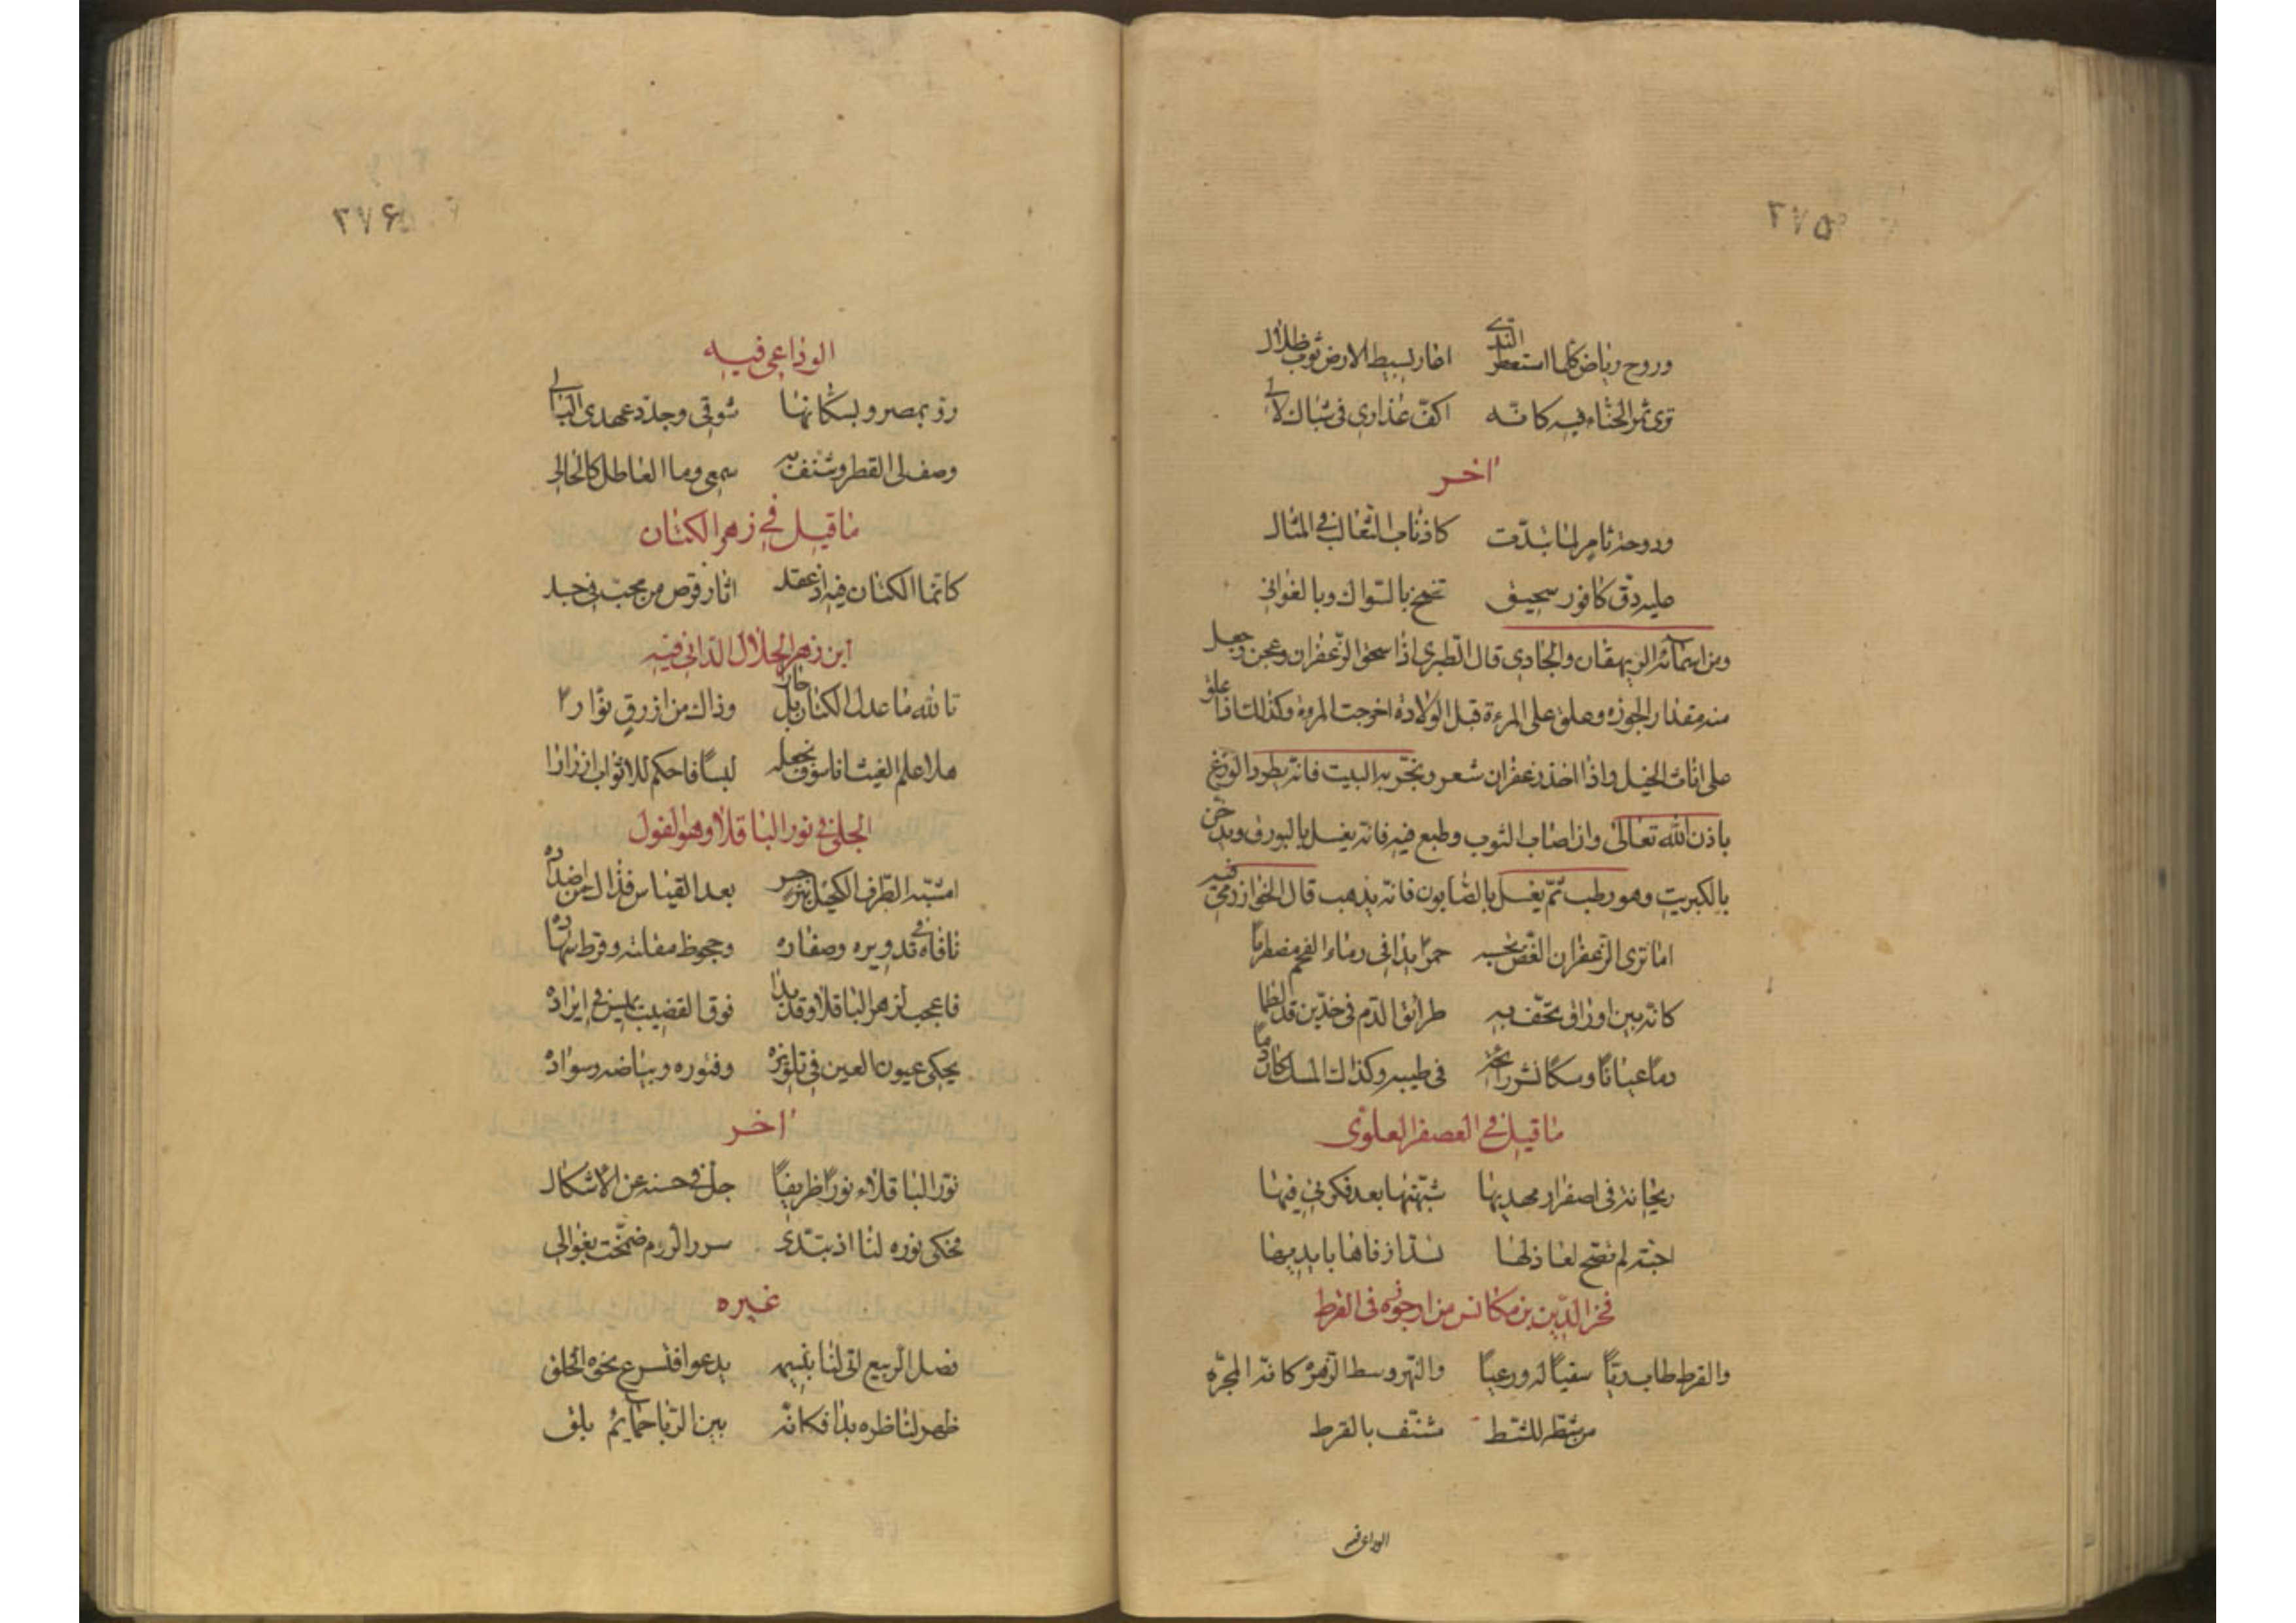 ٢٧٥
وروح رياض كلما استعطر الندى اعار بسيط الارض ثوب ظلال
ترى ثمر الحناء فيه كانه اكف عذارى فى شباك لالى
اخر
ودوحة ثامر لما تبدت كاذناب الثعالب فى المثال
عليه دق كافور سحيق تضمخ بالسواك وبالغوانى
ومن اسمائه الريهقان والجادى قال الطبرى اذا سحق الزعفران وعجن وجعل
منه مقدار الجوزه وعلق على المرءة قبل الولادة اخرجت المرءة وكذلك اذا علق
على اناث الخيل واذا اخذ زعفران شعر وبخر به البيت فانه يطرد الوزغ
باذن الله تعالى وان اصاب الثوب وطبع فيه فانه يغسل بالبورق ويدخن
بالكبريت وهو رطب ثم يغسل بالصابون فانه يذهب قال الخوارزمى فيه
اما ترى الزعفران الغض تحسبه جمرا بدا فى رماد الفحم مضطرما
كانه بين اوراق تحف به طرائق الدم فى خدين قد لطما
دما عيانا ومسكا نشر رائحة فى طيبه وكذاك المسك كان دما
ما قيل فى العصفر العلوى
ريحانة فى اصفرار مهديها شبهتها بعد فكرتى فيها
احبته لم تصح لعاذلها فخر الدين بن مكانس من ارجوزه فى القرط
والقرط طاب ريا سقيا له ورعيا والنهر وسط الزهره كانه المجره
مرشطه للشط مشنف بالقرط
الوداعى فيه
٢٧۶
الوداعى فيه
رو بمصر وبسكانها شوقى وجدد عهدى البالى
وصف لى القطر وشنف به سمعى وما العاطل كالحالى
ما قيل فى زهر الكتان
كانما الكتان فيه اذ عقد اثار قرص من محب فى جسد
ابن زهر الجلال الدانى فيه
تالله ما عدل الكتان بل جار وذاك من ازرق نوارا
هلا علم الغيث انا سوف نجعله لبسا فاحكم للاثواب ازرارا
الحلى فى نور الباقلا وهو الفول
امشبه الطرف الكحيل بنرجس بعد القياس فذاك من اضداده
نافاه فى تدويره وصفاره وجحوظ مقلته وفرط سهاده
فاعجب لزهر الباقلا وقد بدا فوق القضيب يميس فى ابراده
يحكى عيون العين فى تلويزه وفتوره وبياضه وسواده
اخر
نور الباقلاء نورا ظريفا جل فى حسنه عن الاشكال
فحكى نوره لنا اذ تبتدى سرر الروم ضمخت بغوالى
غيره
فصل الربيع اتى لنا بنسيمه يدعوا فتسرع نحوه الخلق
ظهر لناظره بدا فكانه بين الربا حمايم بلق